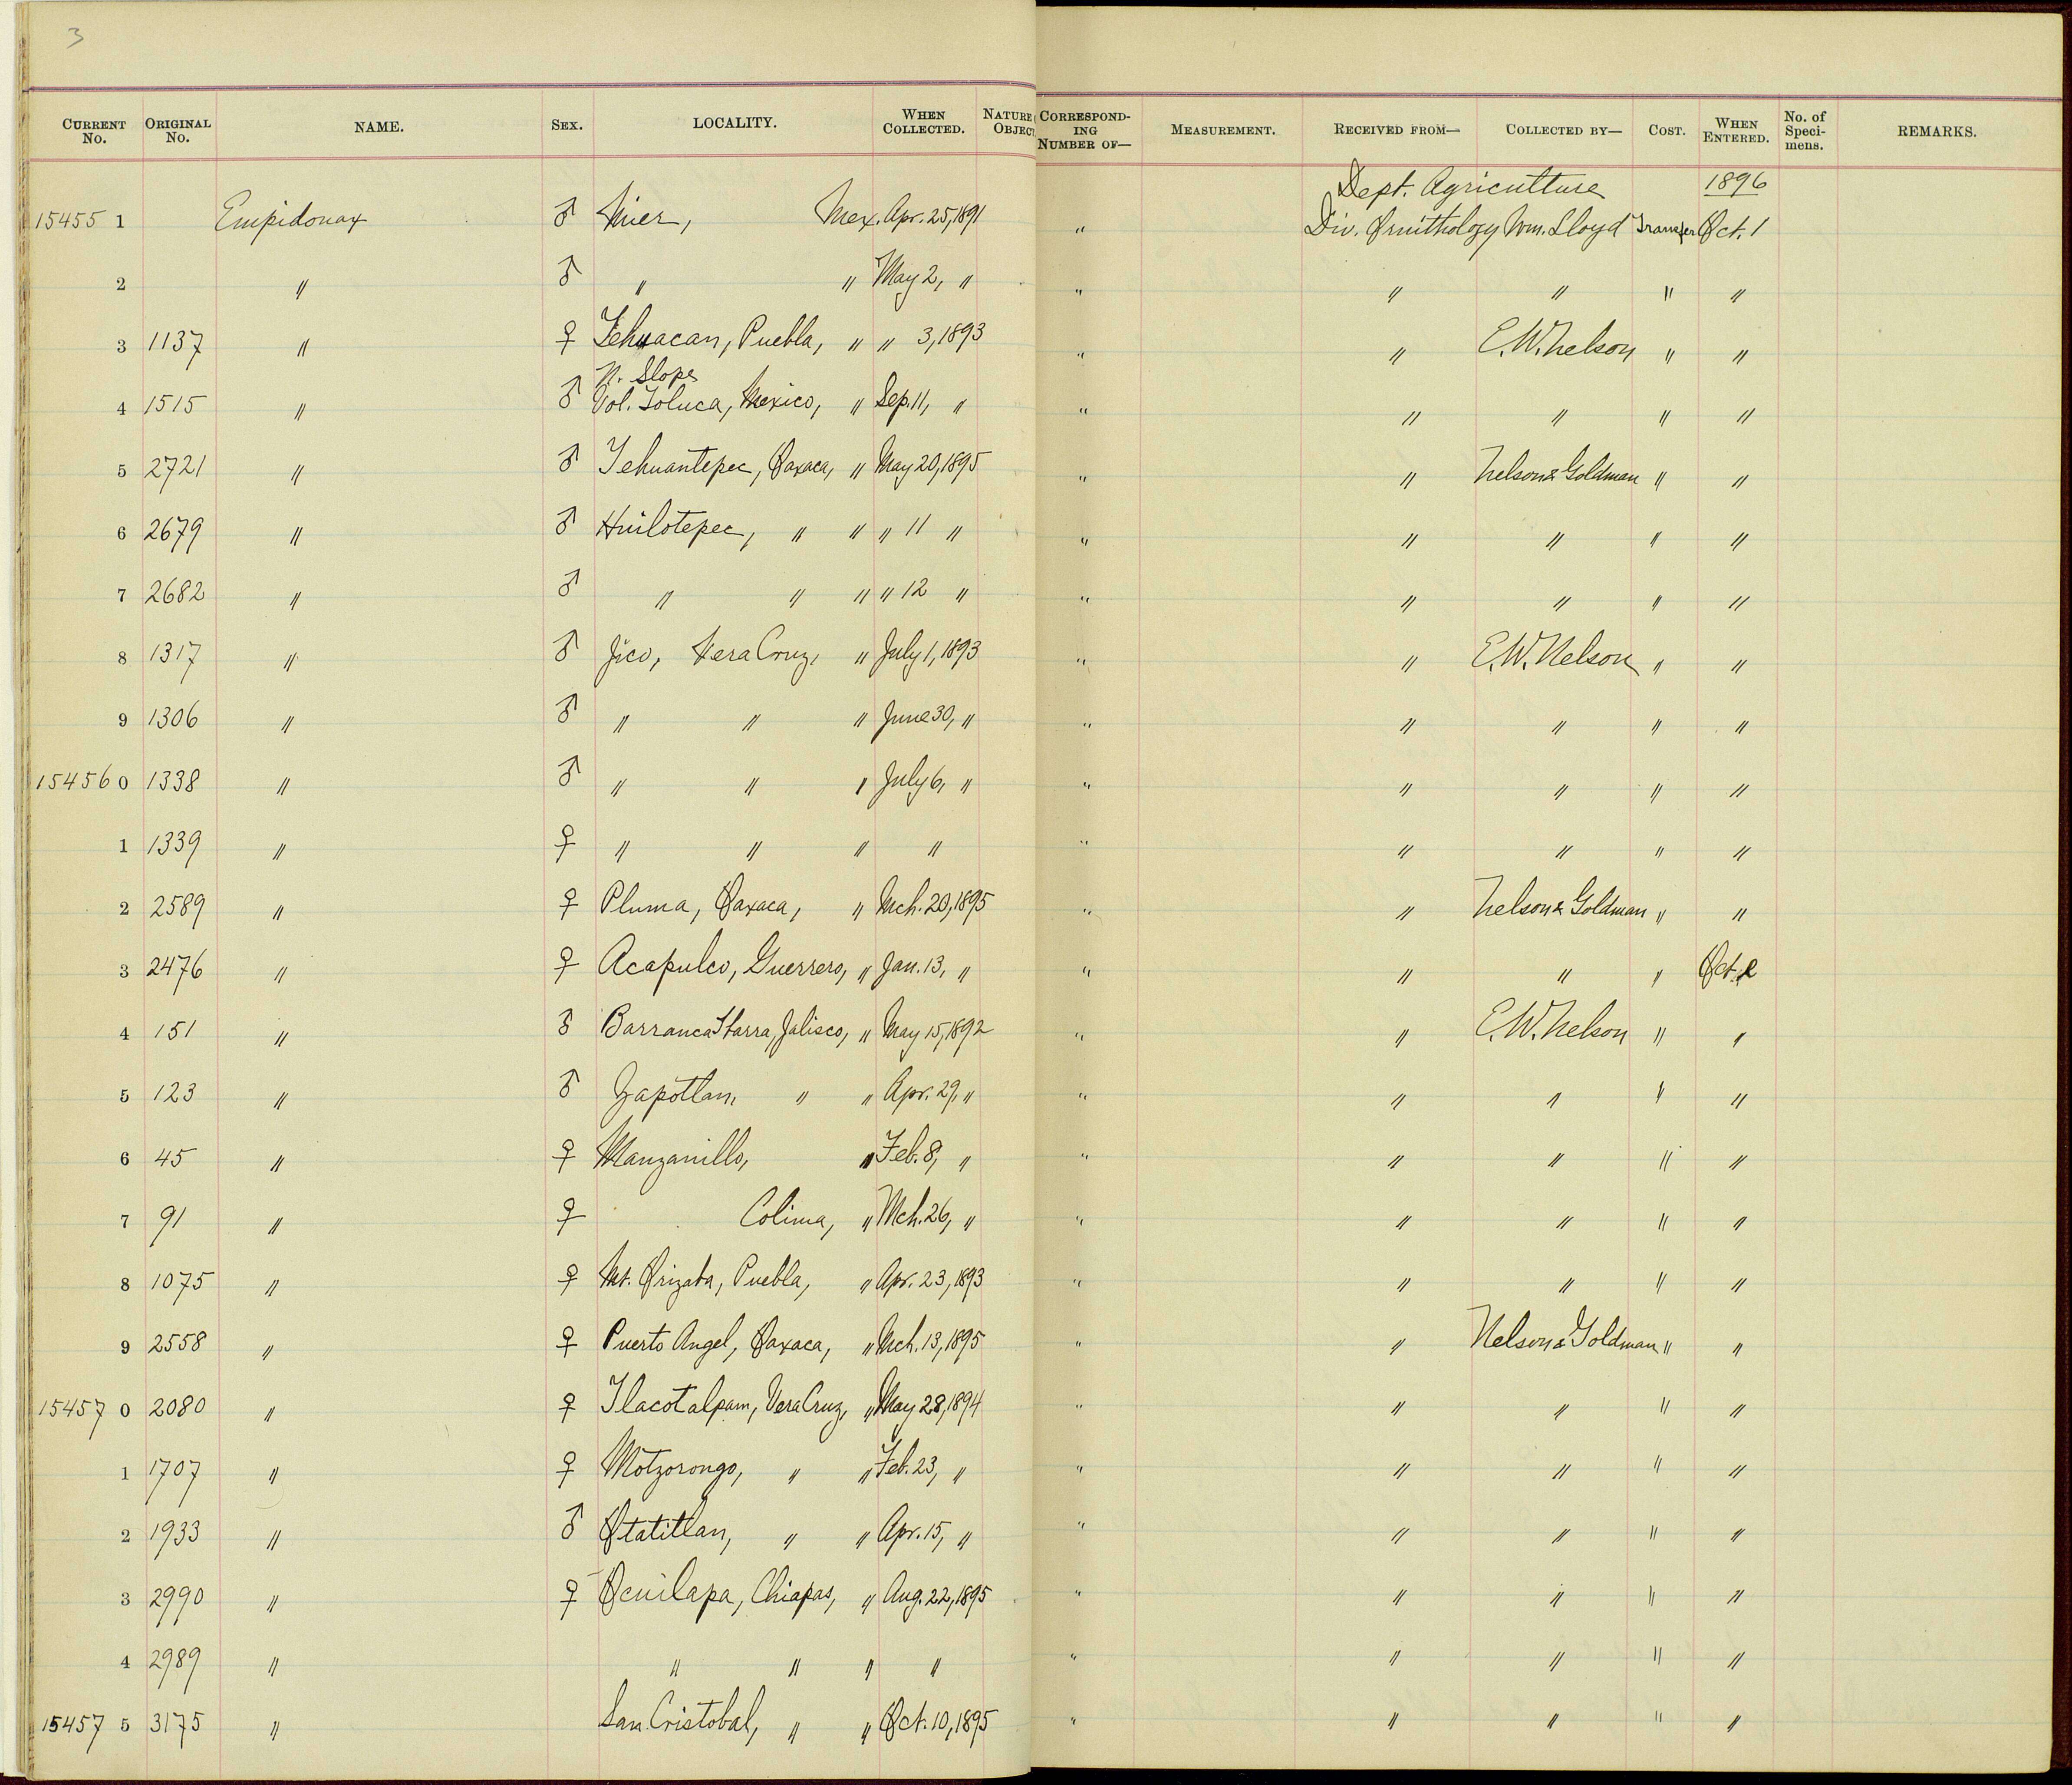 3
CURRENT No. ORIGINAL No. NAME. SEX. LOCALITY. WHEN COLLECTED. NATURE OBJECT CORRESPONDING NUMBER OF— MEASUREMENT. RECEIVED FROM— COLLECTED BY— COST. WHEN ENTERED. No. of Specimens. REMARKS.
Dept. Agriculture 1896
15455 1 Empidonax ♂ Mier, Mex. Apr. 25, 1891 " Div. Ornithology Wm. Lloyd Transfer Oct. 1
2 " ♂ " " May 2, " " " " " "
3 1137 " ♀ Tehuacan, Puebla, " " 3, 1893 " " E. W. Nelson " "
N. Slope
4 1515 " ♂ Vol. Toluca, Mexico, " Sep. 11, " " " " " "
5 2721 " ♂ Tehuantepec, Oaxaca, " May 20, 1895 " " Nelson & Goldman " "
6 2679 " ♂ Huilotepec, " " " 11 " " " " " "
7 2682 " ♂ " " " " 12 " " " " " "
8 1317 " ♂ Jico, Vera Cruz, " July 1, 1893 " " E. W. Nelson " "
9 1306 " ♂ " " " June 30, " " " " " "
15456 0 1338 " ♂ " " " July 6, " " " " " "
1 1339 " ♀ " " " " " " " " "
2 2589 " ♀ Pluma, Oaxaca, " Mch. 20, 1895 " " Nelson & Goldman " "
3 2476 " ♀ Acapulco, Guerrero, " Jan. 13, " " " " " Oct. 2
4 151 " ♂ Barranca Ibarra, Jalisco, " May 15, 1892 " " E. W. Nelson " "
5 123 " ♂ Zapotlan, " " Apr. 29, " " " " " "
6 45 " ♀ Manzanillo, " Feb. 8, " " " " " "
7 91 " ♀ Colima, " Mch. 26, " " " " " "
8 1075 " ♀ Mt. Orizaba, Puebla, " Apr. 23, 1893 " " " " "
9 2558 " ♀ Puerto Angel, Oaxaca, " Mch. 13, 1895 " " Nelson & Goldman " "
15457 0 2080 " ♀ Tlacotalpam, Vera Cruz, " May 28, 1894 " " " " "
1 1707 " ♀ Motzorongo, " " Feb. 23, " " " " " "
2 1933 " ♂ Otatitlan, " " Apr. 15, " " " " " "
3 2990 " ♀ Ocuilapa, Chiapas, " Aug. 22, 1895 " " " " "
4 2989 " " " " " " " " " "
15457 5 3175 " San Cristobal, " " Oct. 10, 1895 " " " " "